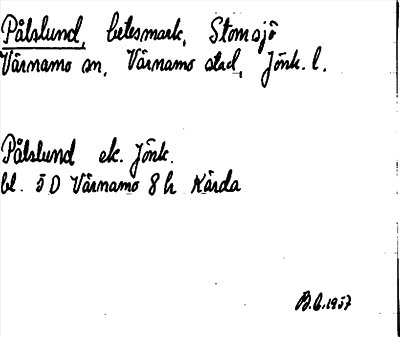 Pålslund, betesmark, Stomsjö
Värnamo sn, Värnamo stad, Jönk. l.
Pålslund ek. Jönk.
bl. 5 D Värnamo 8 h Kärda
B.C. 1957